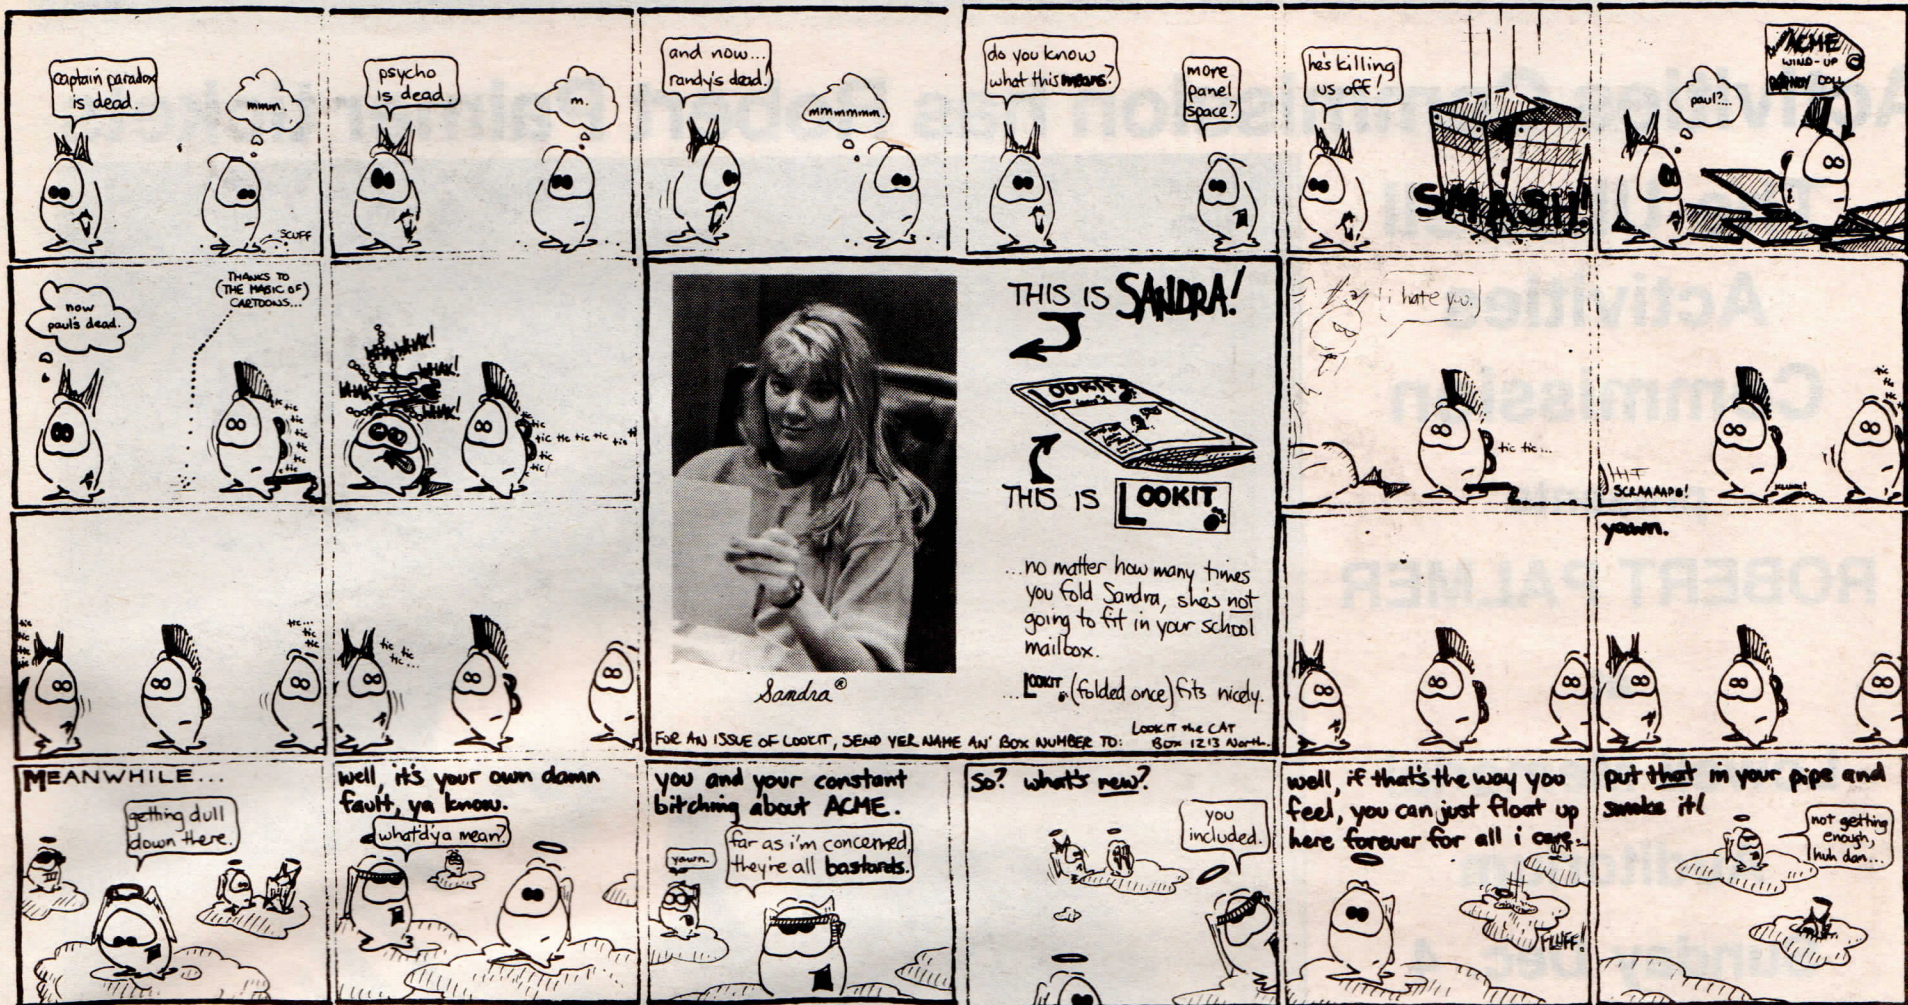 captain paradox
is dead.
mmm.
SCUFF
psycho
is dead.
m.
and now...
randy's dead!
mmmmmm.
do you know
what this means?
more
panel
space?
he's killing
us off!
SMASH!
paul?...
ACME
WIND-UP
DOLL
now
paul's dead.
THANKS TO
(THE MAGIC OF)
CARTOONS...
tic
tic
tic
tic
tic
tic
WHAK!
WHAK!
WHAK!
WHAK!
tic
tic
tic tic tic tic tic
tic
tic
THIS IS SANDRA!
LOOKIT
THIS IS LOOKIT
...no matter how many times
you fold Sandra, she's not
going to fit in your school
mailbox.
...LOOKIT (folded once) fits nicely.
Sandra®
FOR AN ISSUE OF LOOKIT, SEND YER NAME AN' BOX NUMBER TO: LOOKIT the CAT
BOX 1213 North.
i hate yo.
tic tic...
SCRAAAAPE!
tic
tic
tic
tic
tic
tic
tic
tic...
tic
tic
tic
tic
tic
tic...
yawn.
MEANWHILE...
getting dull
down there.
well, it's your own damn
fault, ya know.
what'd'ya mean?
you and your constant
bitching about ACME.
yawn.
far as i'm concerned,
they're all bastards.
So? what's new?
you
included.
well, if that's the way you
feel, you can just float up
here forever for all i care.
FLUFF!
put that in your pipe and
smoke it!
not getting
enough,
huh dan...
Activities Commission has Robert Palmer tickets
Activities
Commission
ROBERT PALMER
Sunday Dec. 4